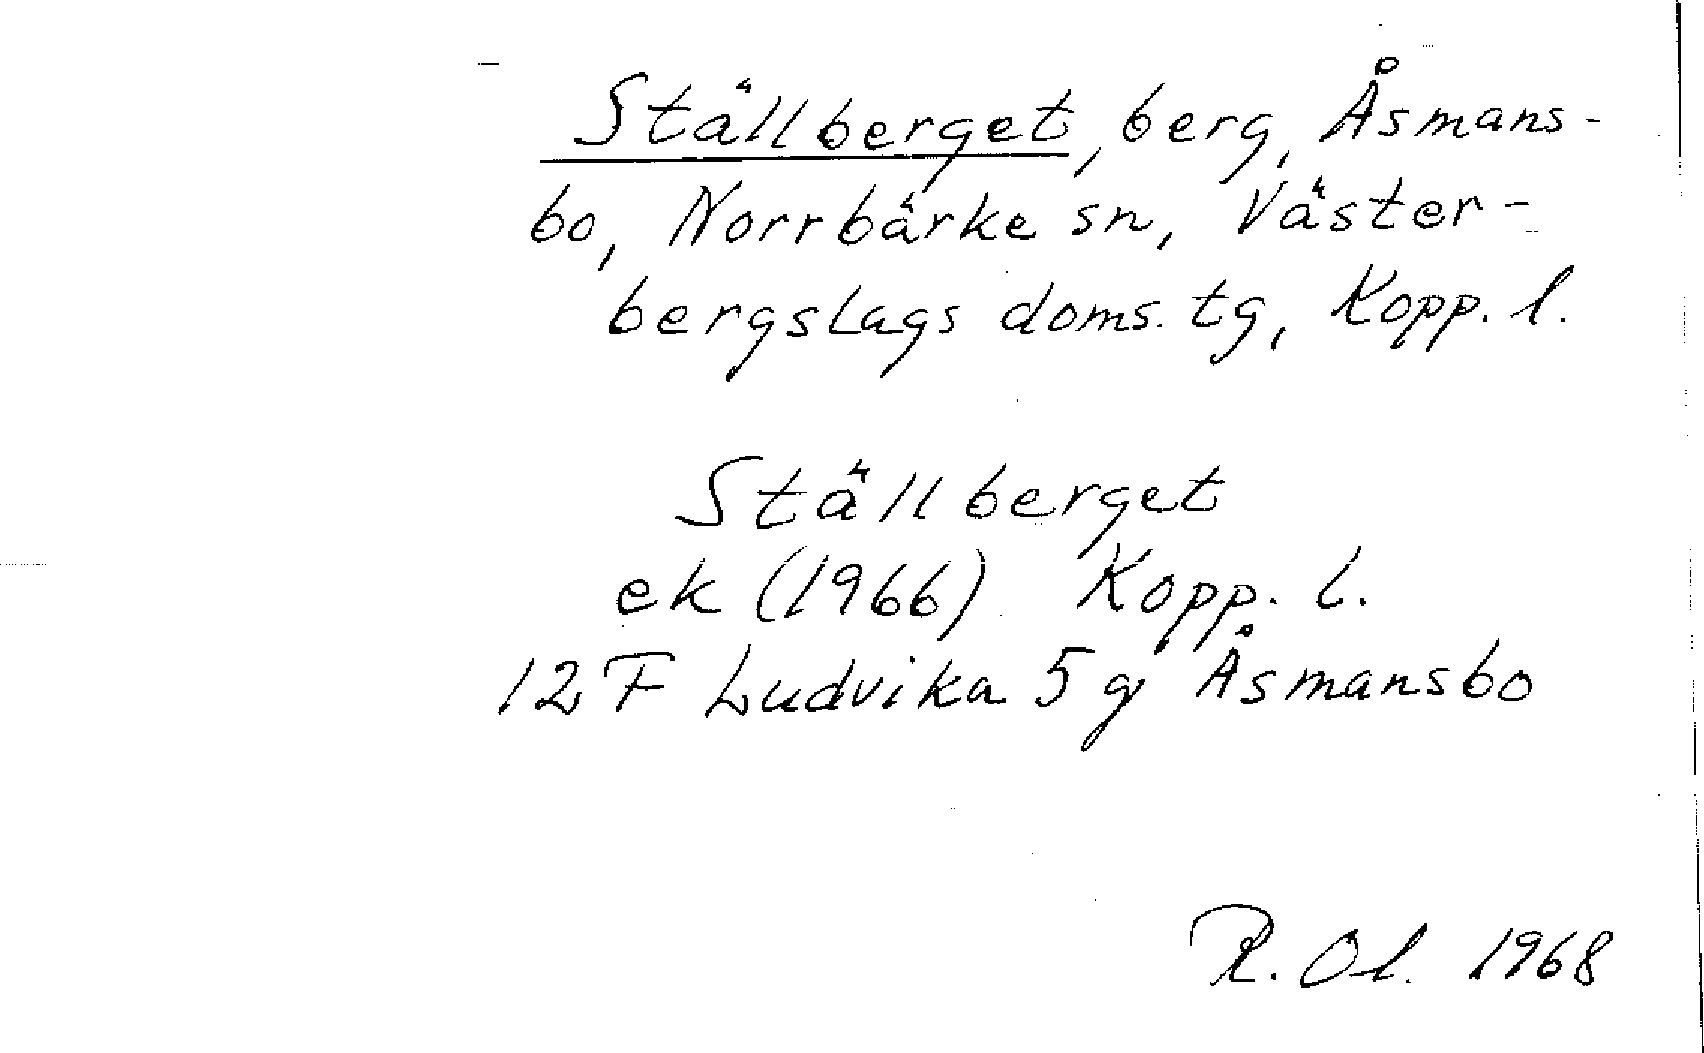 Ställberget, berg, Åsmans-
bo, Norrbärke sn, Väster-
bergslags doms. tg, Kopp. l.
Ställberget
ek (1966) Kopp. l.
12 F Ludvika 5 g Åsmansbo
R. Ol. 1968